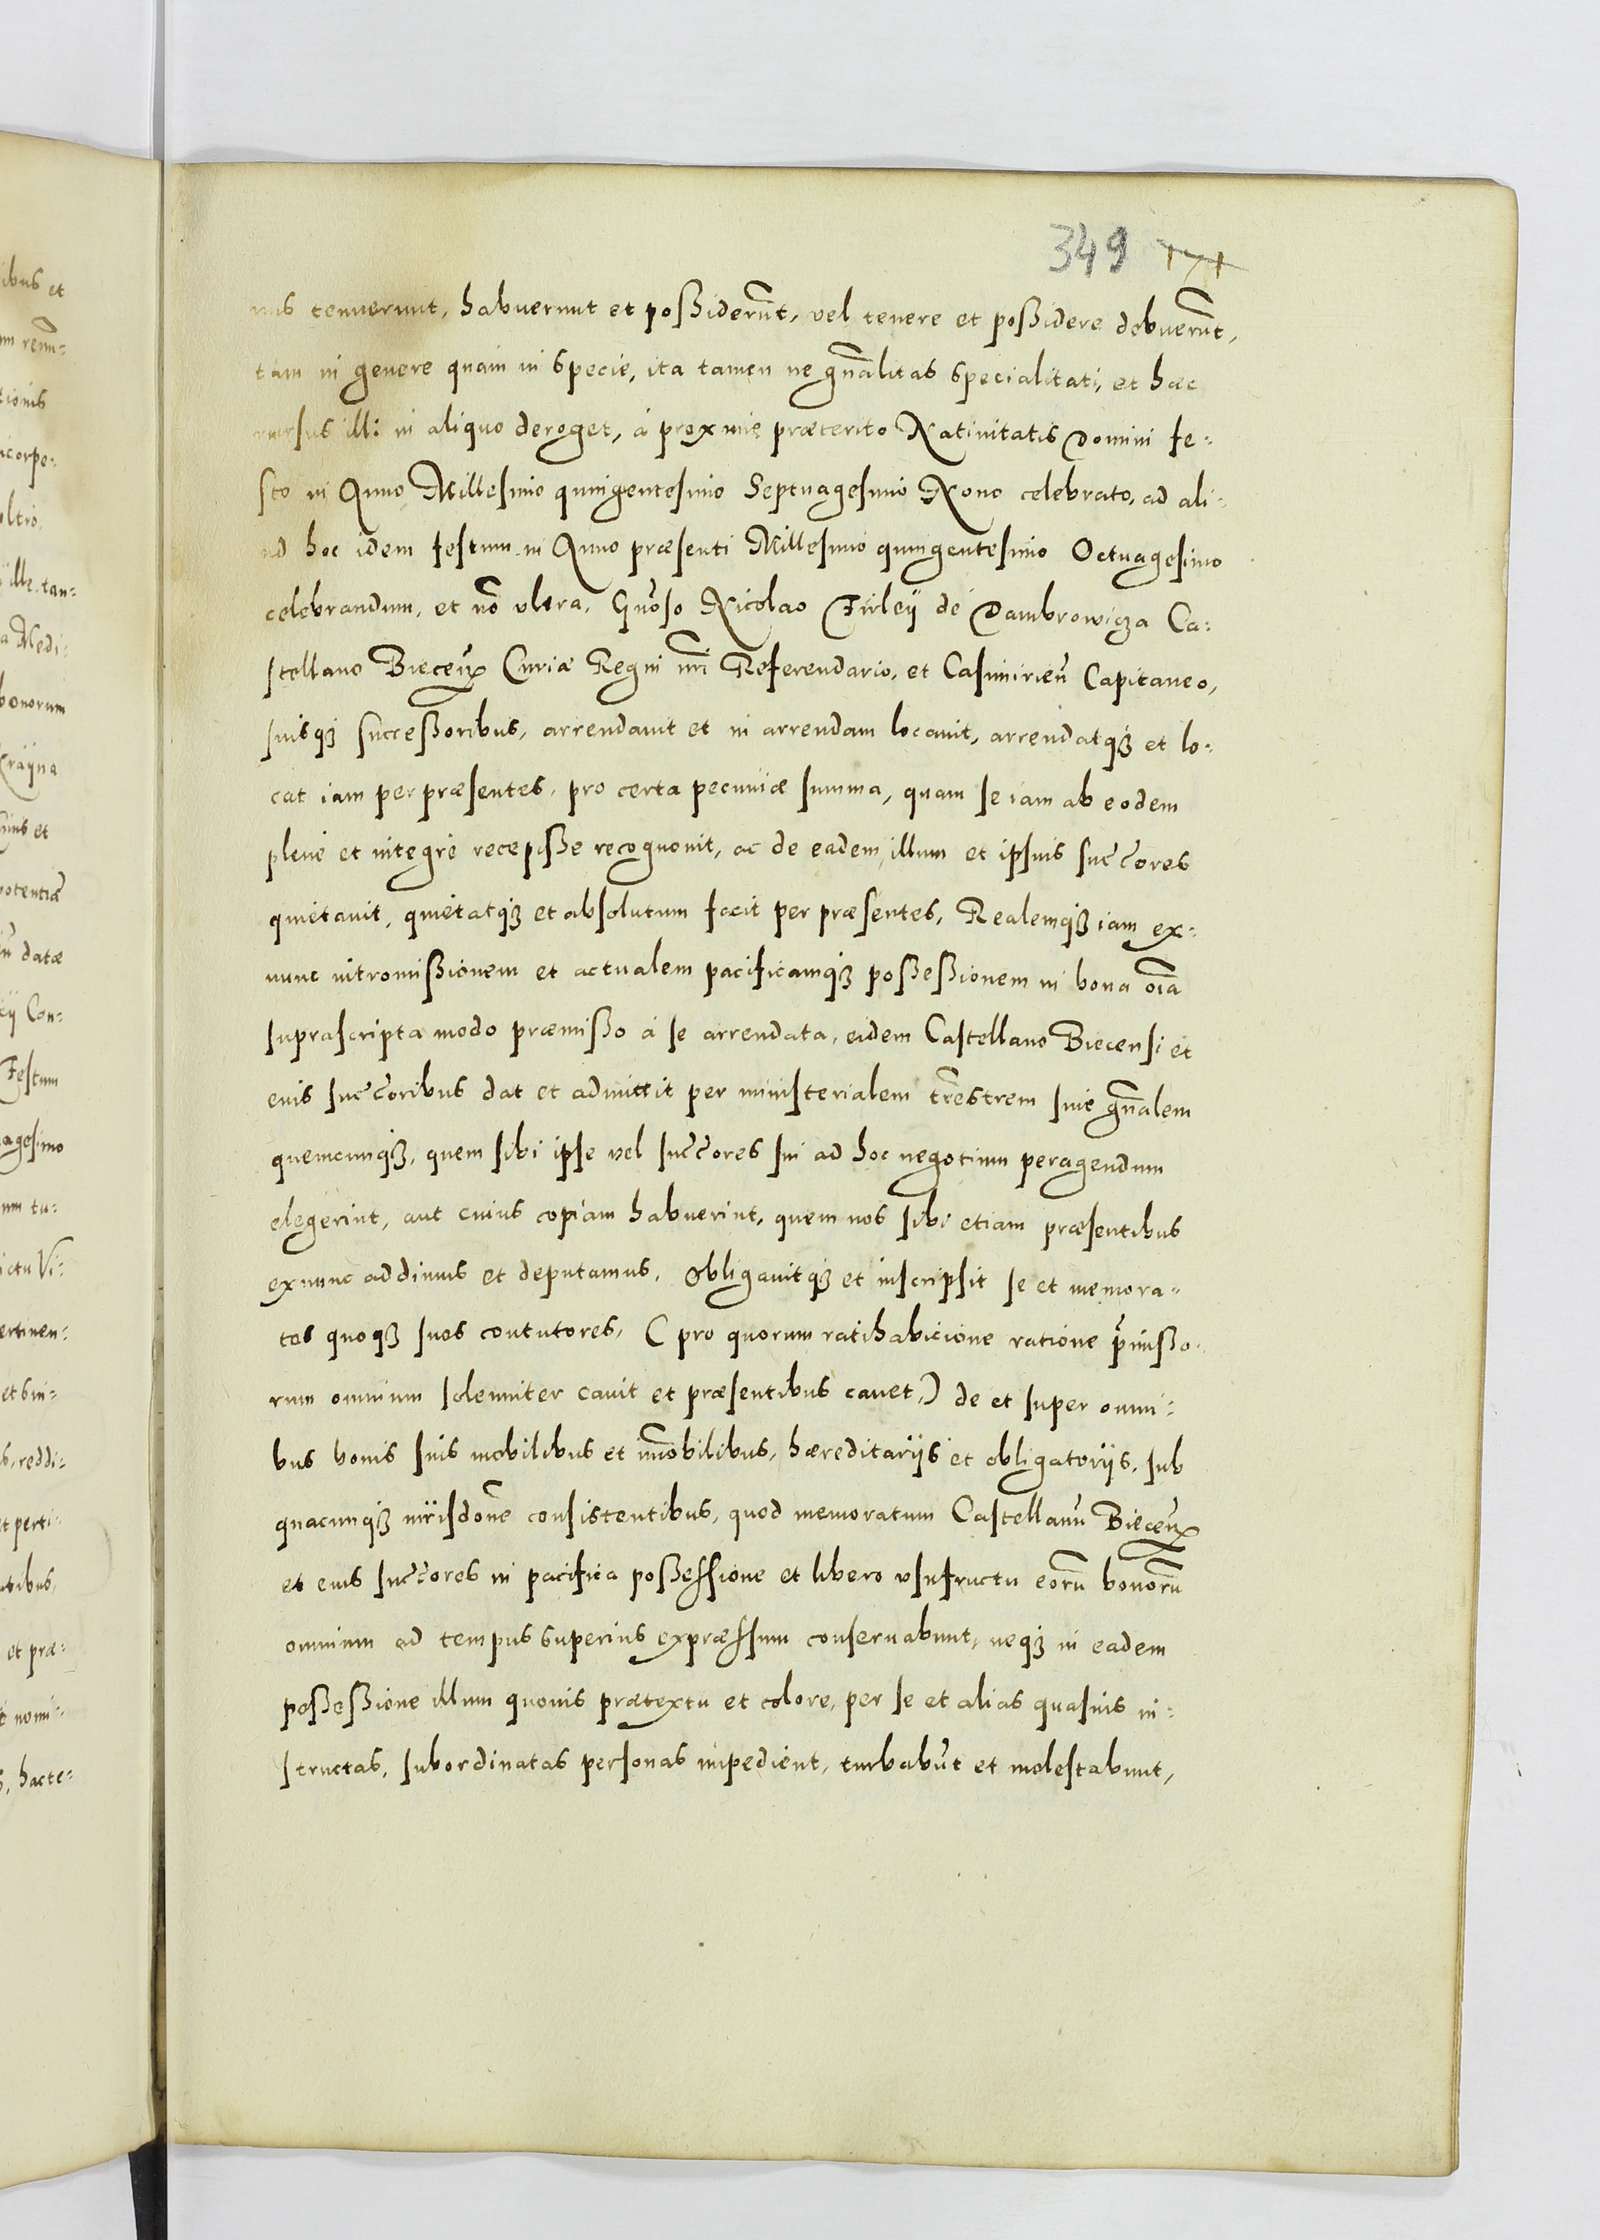 349
nus tenuerunt, habuerunt et possiderũt, vel tenere et possidere debuerũt,
tam in genere quam in specie, ita tamen ne gñalitas specialitati, et hæc
rursus illi in aliquo deroget, à proxime præterito Natiuitatis Domini fe-
sto in Anno Millesimo quingentesimo Septuagesimo Nono celebrato, ad ali-
ud hoc idem festum in Anno præsenti Millesimo quingentesimo Octuagesimo
celebrandum, et nõ vltra, Gñoso Nicolao Firleÿ de Dambrowicza Ca-
stellano Bieceñ Curiæ Regni nri Referendario, et Casimirieñ Capitaneo,
suisq3 successoribus, arrendauit et in arrendam locauit, arrendatq3 et lo-
cat iam per præsentes, pro certa pecuniæ summa, quam se iam ab eodem
plenè et integrè recepisse recognouit, ac de eadem, illum et ipsius succ̃ores
quietauit, quietatq3 et absolutum facit per præsentes, Realemq3 iam ex-
nunc intromissionem et actualem pacificamq3 possessionem in bona oĩa
suprascripta modo præmisso à se arrendata, eidem Castellano Biecensi et
eius succ̃oribus dat et admittit per ministerialem tr̃estrem siue gñalem
quemcunq3, quem sibi ipse vel succ̃ores sui ad hoc negotium peragendum
elegerint, aut cuius copiam habuerint, quem nos sibi etiam præsentibus
exnunc addimus et deputamus. Obligauitq3 et inscripsit se et memora-
tos quoq3 suos contutores, (pro quorum ratihabicione ratione p̃misso-
rum omnium solenniter cauit et præsentibus cauet,) de et super omni-
bus bonis suis mobilibus et im̃obilibus, hæreditarijs et obligatorijs, sub
quacunq3 iurisdõne consistentibus, quod memoratum Castellanũ Bieceñ
et eius succ̃ores in pacifica possessione et libero vsufructu eorũ bonorũ
omnium ad tempus superius expræssum conseruabunt, neq3 in eadem
possessione illum quouis prætextu et colore, per se et alias quasuis in-
structas, subordinatas personas impedient, turbabũt et molestabunt,